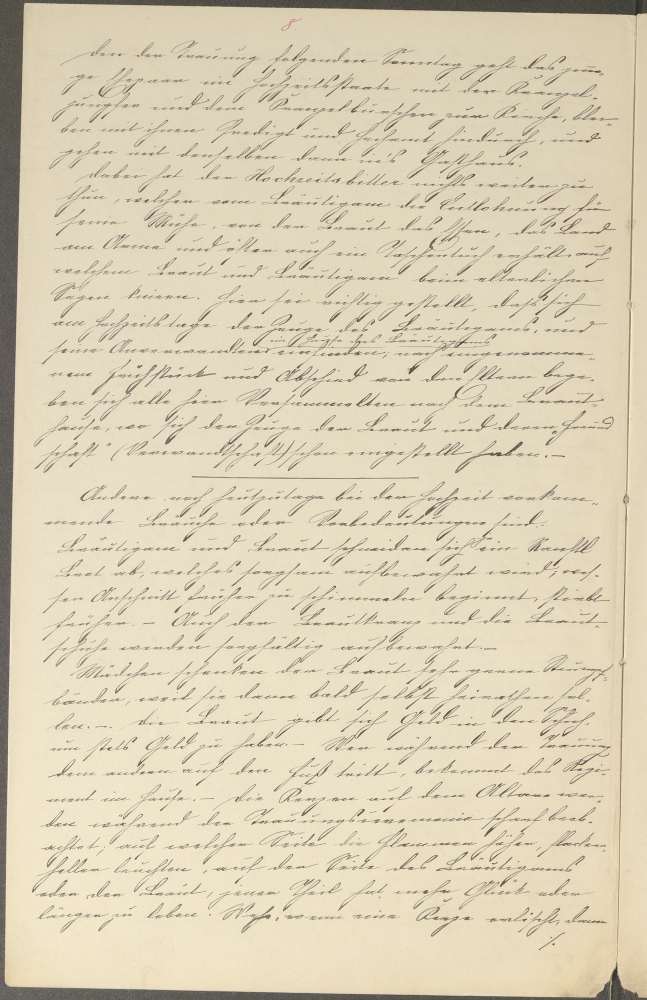 8
Den der Trauung folgenden Sonntag geht das jun-
ge Ehepaar im Hochzeitsstaate mit der Kranzel-
jungfer und dem Kranzelburschen zur Kirche, blei-
ben mit ihnen Predigt und Hochamt hindurch, und
gehen mit denselben dann in's Gasthaus.
Dabei hat der Hochzeitsbitter nichts weiter zu
thun, welcher vom Bräutigam die Entlohnung für
seine Mühe, von der Braut das , das Band
am Arme und öfter auch ein Taschentuch erhält auf
welchem Braut und Bräutigam beim elterlichen
Segen knieen. Hier sei richtig gestellt, daß sich
am Hochzeitstage der Zeuge des Bräutigams, und
seine Anverwandten im Hause des Bräutigams einfinden, nach eingenomme-
nem Frühstück und Abschied von den Eltern bege-
ben sich alle hier Versammelten nach dem Braut-
hause, wo sich der Zeuge der Braut und deren „Freund
schaft" (Verwandtschaft) schon eingestellt haben. –
Andere noch heutzutage bei der Hochzeit vorkom-
mende Bräuche oder Vorbedeutungen sind:
Bräutigam und Braut schneiden sich ein Ranftl
Brot ab, welches sorgsam aufbewahrt wird, wes-
sen Anschnitt früher zu schimmeln beginnt, stirbt
früher. – Auch der Brautkranz und die Braut-
schuhe werden sorgfältig aufbewahrt. –
Mädchen schenken der Braut sehr gerne Strumpf-
bänder, weil sie dann bald selbst heirathen sol-
len. – Die Braut gibt sich Geld in den Schuh,
um stets Geld zu haben. – Wer während der Trauung
dem andern auf den Fuß tritt, bekommt das Regi-
ment im Hause. – Die Kerzen auf dem Altare wer-
den während der Trauungsceremonie scharf beob-
achtet; auf welcher Seite die Flammen höher,
heller leuchten, auf der Seite des Bräutigams
oder der Braut, jener Theil hat mehr Glück oder
länger zu leben. Wehe, wenn eine Kerze erlischt, dann
./.